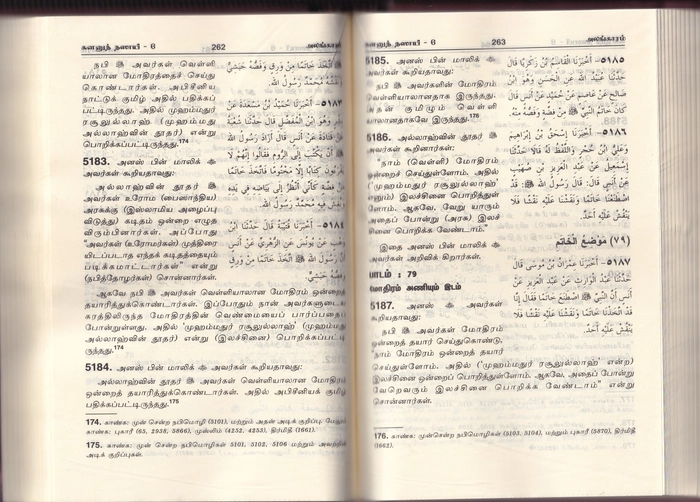 சுனனுந் நஸாயீ - 6
262
அலங்காரம்
நபி ﷺ அவர்கள் வெள்ளி
யாலான மோதிரத்தைச் செய்து
கொண்டார்கள். அபிசீனிய
நாட்டுக் குமிழ் அதில் பதிக்கப்
பட்டிருந்தது. அதில் முஹம்மதுர்
ரசூலுல்லாஹ் (முஹம்மது
அல்லாஹ்வின் தூதர்) என்று
பொறிக்கப்பட்டிருந்தது.174
5183. அனஸ் பின் மாலிக் ﷺ
அவர்கள் கூறியதாவது:
அல்லாஹ்வின் தூதர் ﷺ
அவர்கள் உரோம (பைஸாந்திய)
அரசுக்கு (இஸ்லாமிய அழைப்பு
விடுத்து) கடிதம் ஒன்றை எழுத
விரும்பினார்கள். அப்போது
"அவர்கள் (உரோமர்கள்) முத்திரை
யிடப்படாத எந்தக் கடிதத்தையும்
படிக்கமாட்டார்கள்" என்று
(நபித்தோழர்கள்) சொன்னார்கள்.
ஆகவே நபி ﷺ அவர்கள் வெள்ளியாலான மோதிரம் ஒன்றைத்
தயாரித்துக்கொண்டார்கள். இப்போதும் நான் அவர்களுடைய
கரத்திலிருந்த மோதிரத்தின் வெண்மையைப் பார்ப்பதைப்
போன்றுள்ளது. அதில் 'முஹம்மதுர் ரசூலுல்லாஹ்' (முஹம்மது
அல்லாஹ்வின் தூதர்) என்று (இலச்சினை) பொறிக்கப்பட்டி
ருந்தது.174
5184. அனஸ் பின் மாலிக் ﷺ அவர்கள் கூறியதாவது:
அல்லாஹ்வின் தூதர் ﷺ அவர்கள் வெள்ளியாலான மோதிரம்
ஒன்றைத் தயாரித்துக்கொண்டார்கள். அதில் அபிசீனியக் குமிழ்
பதிக்கப்பட்டிருந்தது.175
174. காண்க: முன் சென்ற நபிமொழி (5101), மற்றும் அதன் அடிக் குறிப்பு; மேலும்
காண்க: புகாரீ (65, 2938, 5866), முஸ்லிம் (4252, 4253), திர்மிதீ (1661).
175. காண்க: முன் சென்ற நபிமொழிகள் 5101, 5102, 5106 மற்றும் அவற்றின்
அடிக் குறிப்புகள்.
اتَّخَذَ خَاتَمًا مِنْ وَرِقٍ وَفَصُّهُ حَبَشِيٌّ
وَنَقْشُهُ مُحَمَّدٌ رَسُولُ اللهِ.
٥١٨٣- أَخْبَرَنَا حُمَيْدُ بْنُ مَسْعَدَةَ عَنْ
بِشْرٍ وَهُوَ ابْنُ الْمُفَضَّلِ قَالَ حَدَّثَنَا شُعْبَةُ
عَنْ قَتَادَةَ عَنْ أَنَسٍ قَالَ أَرَادَ رَسُولُ اللهِ
ﷺ أَنْ يَكْتُبَ إِلَى الرُّومِ فَقَالُوا إِنَّهُمْ لَا
يَقْرَءُونَ كِتَابًا إِلَّا مَخْتُومًا فَاتَّخَذَ خَاتَمًا
مِنْ فِضَّةٍ كَأَنِّي أَنْظُرُ إِلَى بَيَاضِهِ فِي يَدِهِ
وَنُقِشَ فِيهِ مُحَمَّدٌ رَسُولُ اللهِ.
٥١٨٤- أَخْبَرَنَا قُتَيْبَةُ قَالَ حَدَّثَنَا ابْنُ
وَهْبٍ عَنْ يُونُسَ عَنِ الزُّهْرِيِّ عَنْ أَنَسٍ
أَنَّ رَسُولَ اللهِ ﷺ اتَّخَذَ خَاتَمًا مِنْ وَرِقٍ
وَفَصُّهُ حَبَشِيٌّ.
சுனனுந் நஸாயீ - 6
263
அலங்காரம்
5185. அனஸ் பின் மாலிக் ﷺ
அவர்கள் கூறியதாவது:
நபி ﷺ அவர்களின் மோதிரம்
வெள்ளியாலானதாக இருந்தது.
அதன் குமிழும் வெள்ளி
யாலானதாகவே இருந்தது.176
5186. அல்லாஹ்வின் தூதர் ﷺ
அவர்கள் கூறினார்கள்:
"நாம் (வெள்ளி) மோதிரம்
ஒன்றைச் செய்துள்ளோம். அதில்
('முஹம்மதுர் ரசூலுல்லாஹ்'
எனும்) இலச்சினை பொறித்துள்
ளோம். ஆகவே, வேறு யாரும்
அதைப் போன்று (அரசு) இலச்
சினை பொறிக்க வேண்டாம்."
இதை அனஸ் பின் மாலிக் ﷺ
அவர்கள் அறிவிக்கிறார்கள்.
பாடம் : 79
மோதிரம் அணியும் இடம்
5187. அனஸ் ﷺ அவர்கள்
கூறியதாவது:
நபி ﷺ அவர்கள் மோதிரம்
ஒன்றைத் தயார் செய்துகொண்டு,
"நாம் மோதிரம் ஒன்றைத் தயார்
செய்துள்ளோம். அதில் ('முஹம்மதுர் ரசூலுல்லாஹ்' என்ற)
இலச்சினை ஒன்றைப் பொறித்துள்ளோம். ஆகவே, அதைப் போன்று
வேறெவரும் இலச்சினை பொறிக்க வேண்டாம்" என்று
சொன்னார்கள்.
176. காண்க: முன்சென்ற நபிமொழிகள் (5103, 5104), மற்றும் புகாரீ (5870), திர்மிதீ
(1662).
٥١٨٥- أَخْبَرَنَا الْقَاسِمُ بْنُ زَكَرِيَّا قَالَ
حَدَّثَنَا عُبَيْدُ اللهِ عَنِ الْحَسَنِ وَهُوَ ابْنُ
صَالِحٍ عَنْ عَاصِمٍ عَنْ حُمَيْدٍ عَنْ أَنَسٍ قَالَ
كَانَ خَاتَمُ النَّبِيِّ ﷺ مِنْ فِضَّةٍ وَفَصُّهُ مِنْهُ.
٥١٨٦- أَخْبَرَنَا إِسْحَقُ بْنُ إِبْرَاهِيمَ
وَعَلِيُّ بْنُ حُجْرٍ وَاللَّفْظُ لَهُ قَالَا حَدَّثَنَا
إِسْمَعِيلُ عَنْ عَبْدِ الْعَزِيزِ بْنِ صُهَيْبٍ
عَنْ أَنَسٍ قَالَ: قَالَ رَسُولُ اللهِ ﷺ: قَدِ
اصْطَنَعْنَا خَاتَمًا وَنَقَشْنَا عَلَيْهِ نَقْشًا فَلَا
يَنْقُشْ عَلَيْهِ أَحَدٌ.
(٧٩) مَوْضِعُ الْخَاتَمِ
٥١٨٧- أَخْبَرَنَا عِمْرَانُ بْنُ مُوسَى قَالَ
حَدَّثَنَا عَبْدُ الْوَارِثِ عَنْ عَبْدِ الْعَزِيزِ عَنْ
أَنَسٍ أَنَّ النَّبِيَّ ﷺ اصْطَنَعَ خَاتَمًا فَقَالَ إِنَّا
قَدِ اتَّخَذْنَا خَاتَمًا وَنَقَشْنَا عَلَيْهِ نَقْشًا فَلَا
يَنْقُشْ عَلَيْهِ أَحَدٌ.